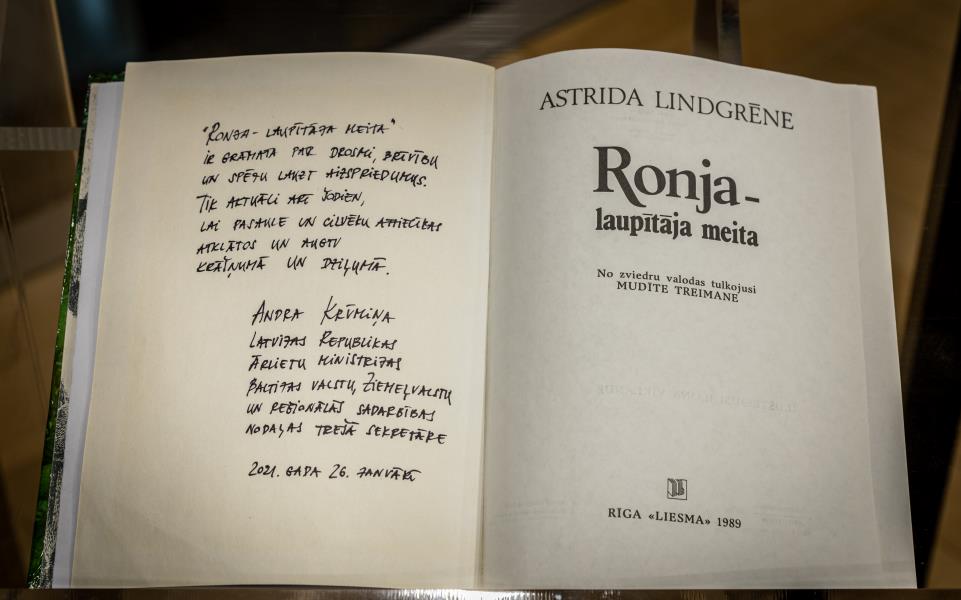 "Ronja - laupītāja meita"
ir grāmata par drosmi, brīvību
un spēju lauzt aizspriedumus.
Tik aktuāli arī šodien,
lai pasaule un cilvēku attiecības
atklātos un augtu
krāšņumā un dziļumā.
Andra Krūmiņa
Latvijas Republikas
Ārlietu ministrijas
Baltijas valstu, Ziemeļvalstu
un reģionālās sadarbības
nodaļas trešā sekretāre
2021. gada 26. janvārī
ASTRIDA LINDGRĒNE
Ronja –
laupītāja meita
No zviedru valodas tulkojusi
MUDĪTE TREIMANE
RĪGA «LIESMA» 1989